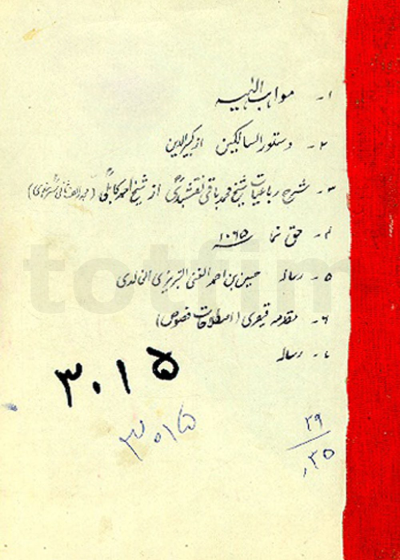 ۱- مواہب الٰہیہ
۲- دستور السالکین از کبیر الدین
۳- شرح رباعیات شیخ محمد باقی نقشبندی از شیخ احمد کابلی (مجدد الف ثانی سرہندی)
۴- حق نما ۱۰۶۵
۵- رسالہ حسین بن احمد الغنی التبریزی الخالدی
۶- مقدمہ قیصری (اصطلاحات فصوص)
۷- رسالہ
۳۰۱۵
۳۰۱۵
۲۹
۳۵
totfim